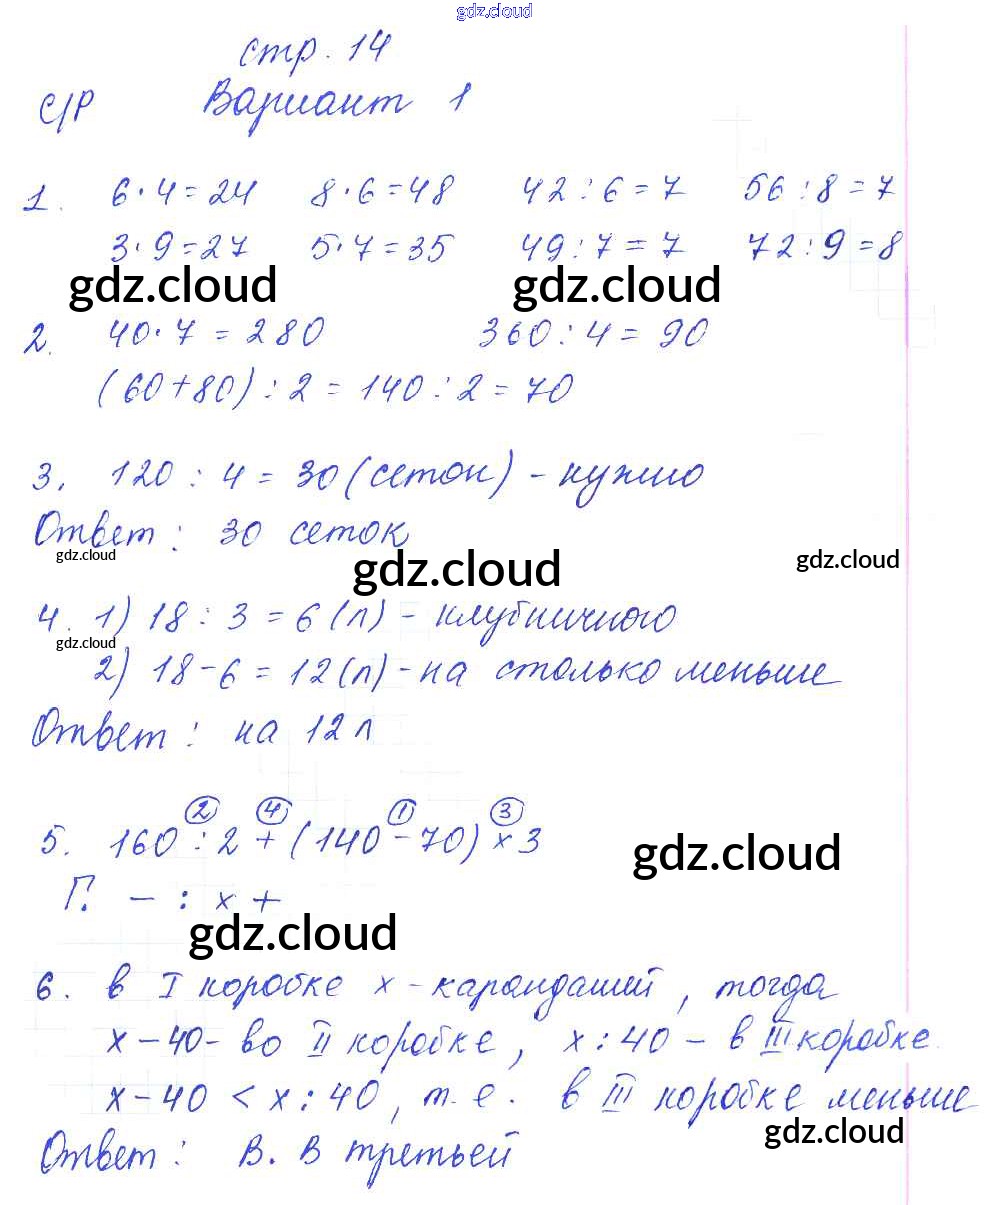 gdz.cloud
стр. 14
С/Р Вариант 1
1. 6·4=24 8·6=48 42:6=7 56:8=7
3·9=27 5·7=35 49:7=7 72:9=8
gdz.cloud gdz.cloud
2. 40·7=280 360:4=90
(60+80):2=140:2=70
3. 120:4=30(сеток)-нужно
Ответ: 30 сеток
gdz.cloud gdz.cloud gdz.cloud
4. 1) 18:3=6(л)-клубничного
gdz.cloud
2) 18-6=12(л)-на столько меньше
Ответ: на 12л
2 4 1 3
5. 160:2+(140-70)×3
gdz.cloud
Г. - : × +
gdz.cloud
6. в I коробке x-карандашей, тогда
x-40-во II коробке, x:40-в III коробке.
x-40<x:40, т.е. в III коробке меньше
gdz.cloud
Ответ: В. В третьей